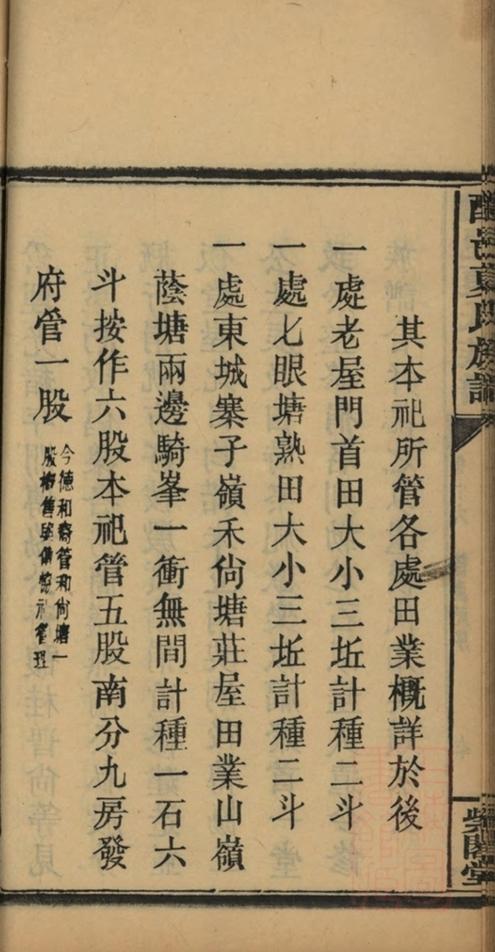 其本祀所管各處田業概詳於後
一處老屋門首田大小三坵計種二斗
一處匕眼塘熟田大小三坵計種二斗
一處東城寨子嶺禾尙塘莊屋田業山嶺
蔭塘兩邊騎峯一衝無間計種一石六
斗按作六股本祀管五股南分九房發
府管一股
今德和齋管和尙塘一
氏族譜
紫閣堂